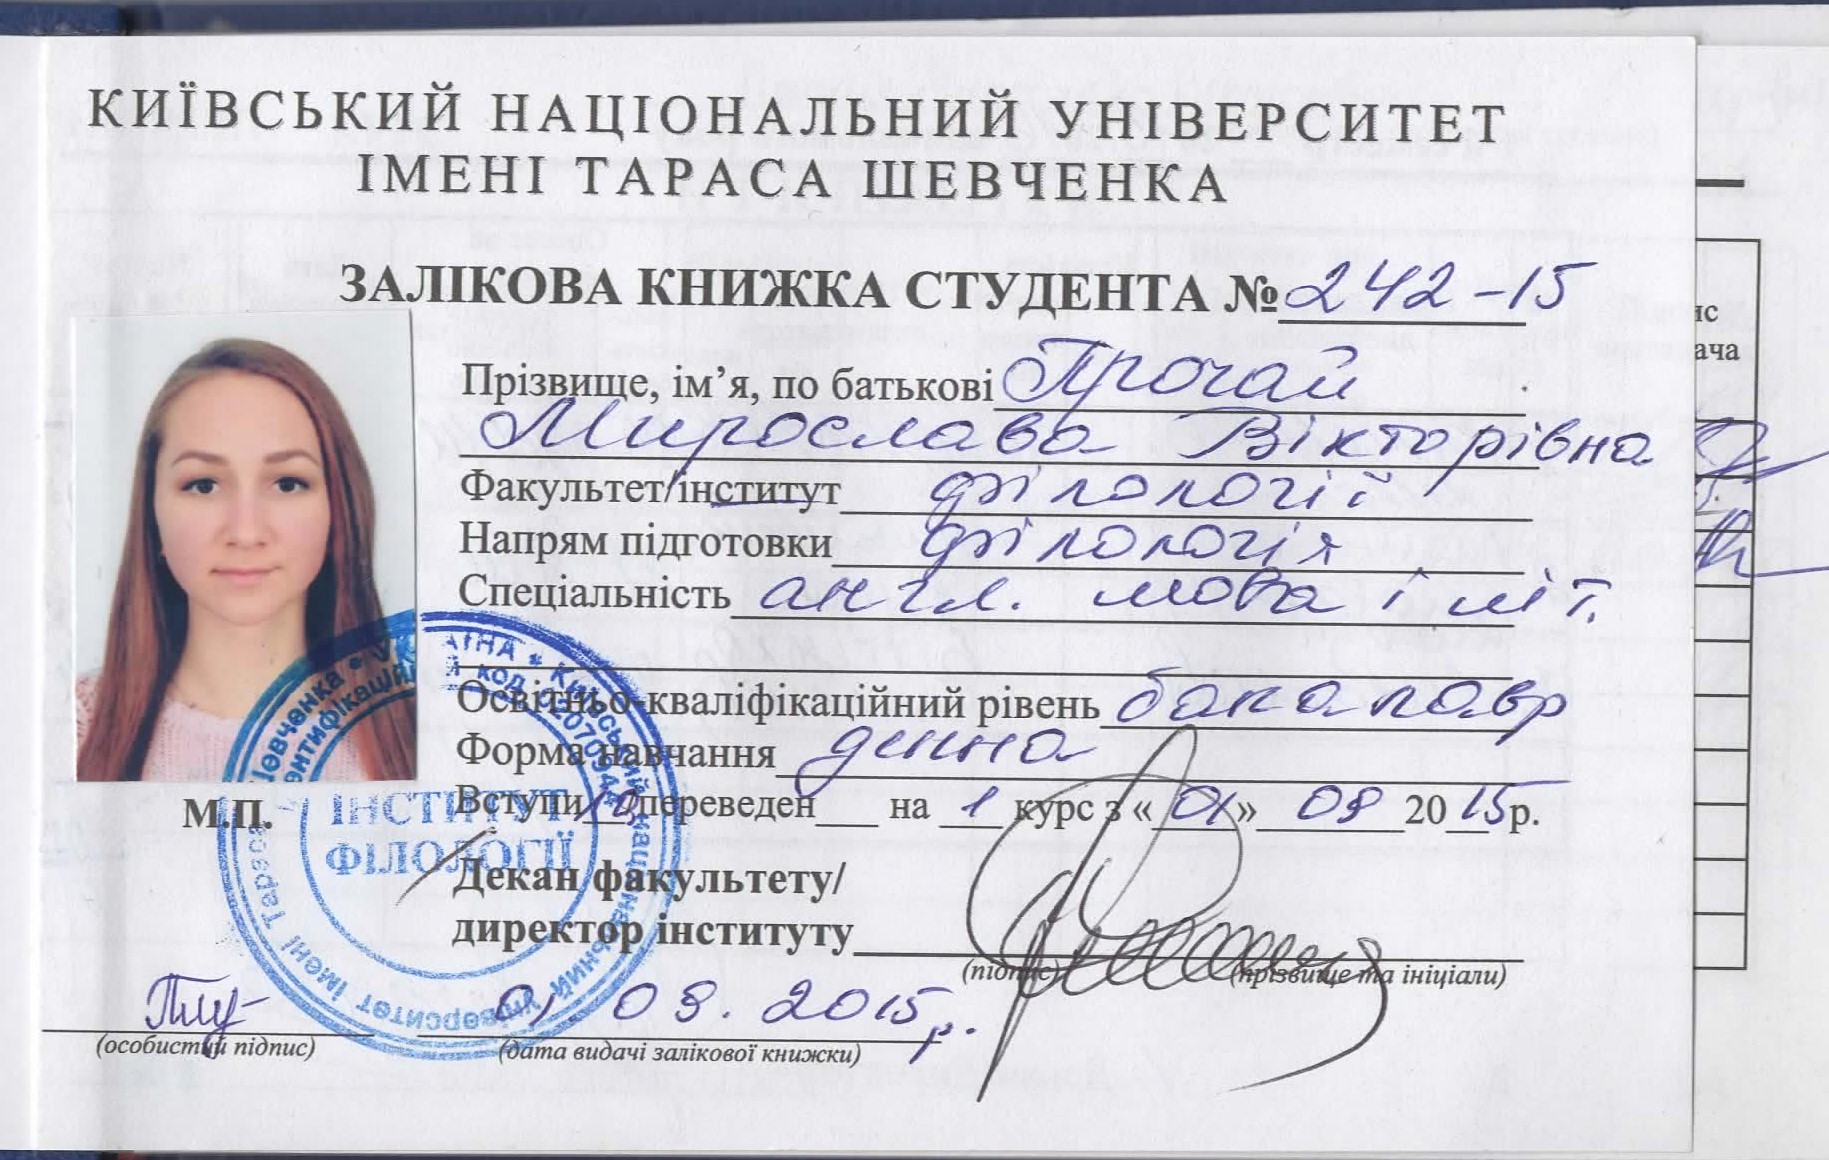 КИЇВСЬКИЙ НАЦІОНАЛЬНИЙ УНІВЕРСИТЕТ
ІМЕНІ ТАРАСА ШЕВЧЕНКА
ЗАЛІКОВА КНИЖКА СТУДЕНТА № 242-15
Прізвище, ім’я, по батькові Прочай
Мирослава Вікторівна
Факультет/інститут філології
Напрям підготовки філологія
Спеціальність англ. мова і літ.
Освітньо-кваліфікаційний рівень бакалавр
Форма навчання денна
Вступила переведен___ на 1 курс з «01» 09 2015р.
М.П.
ІНСТИТУТ
ФІЛОЛОГІЇ
Декан факультету/
директор інституту
(підпис) (прізвище та ініціали)
01. 09. 2015р.
(особистий підпис) (дата видачі залікової книжки)
Київський національний університет імені Тараса Шевченка * УКРАЇНА *
код 02070944
ис
ача